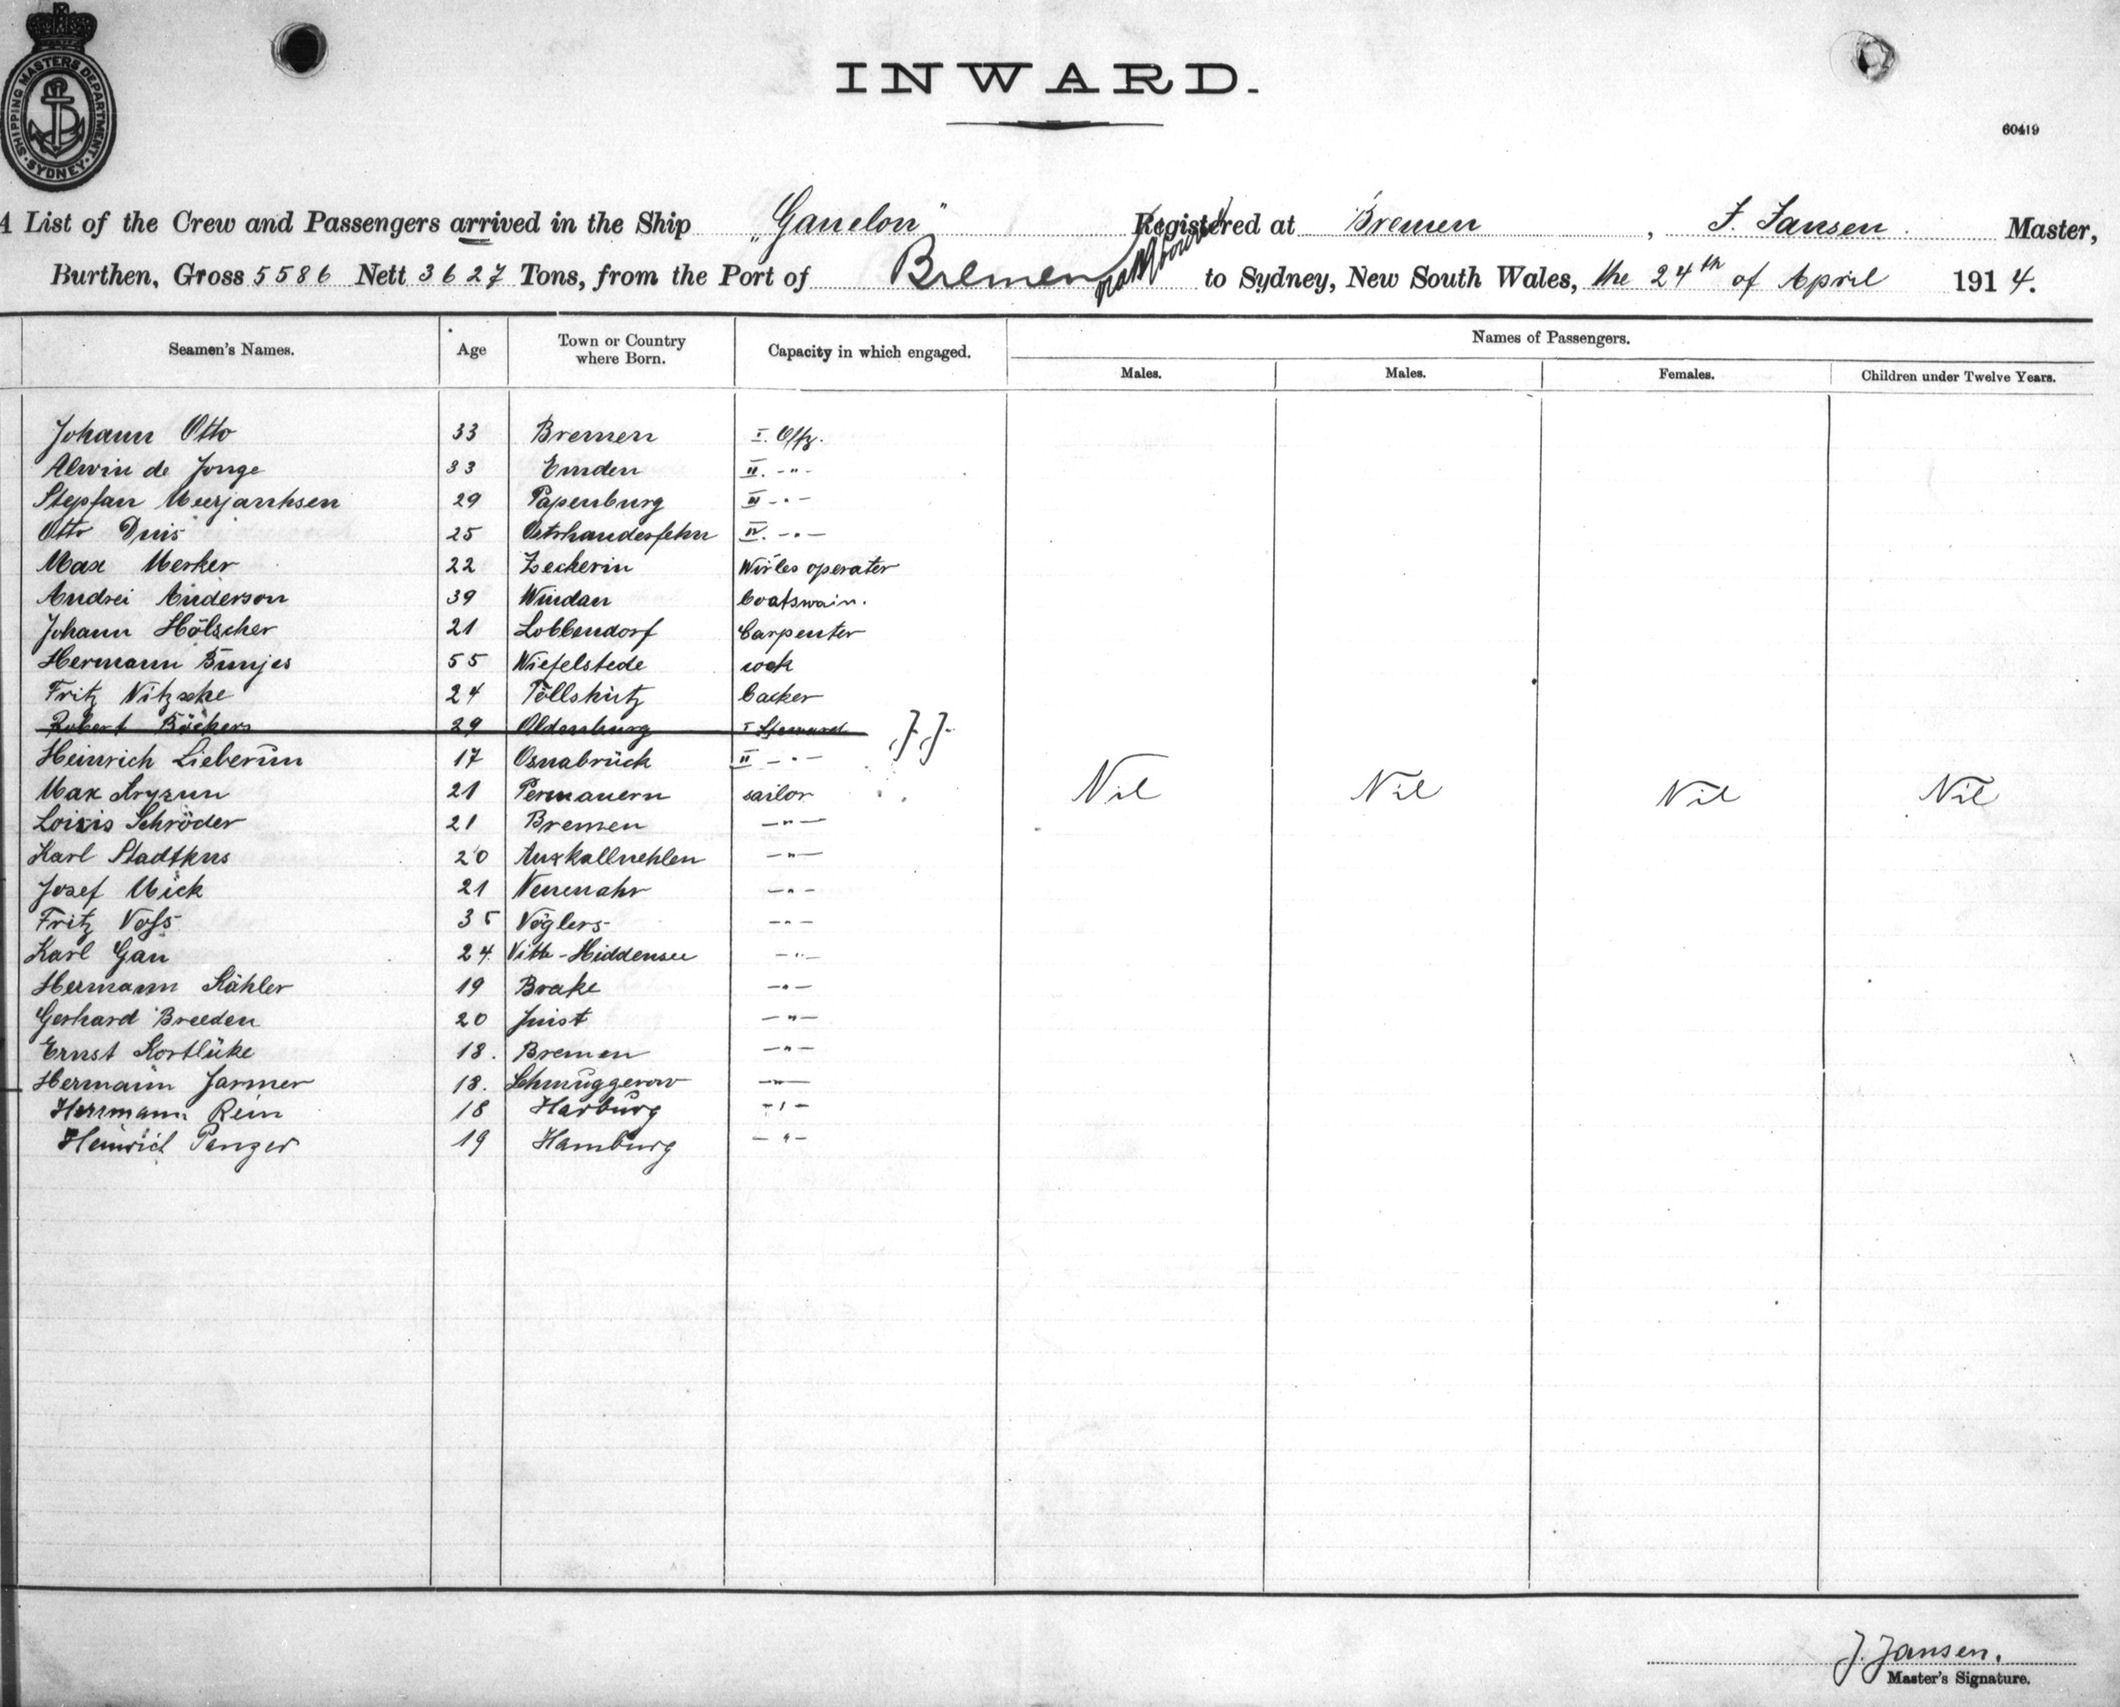 SHIPPING MASTERS DEPARTMENT · SYDNEY ·
INWARD.
60419
A List of the Crew and Passengers arrived in the Ship „Ganelon" Registered at Bremen, J. Jansen. Master,
Burthen, Gross 5586 Nett 3627 Tons, from the Port of Bremen via Melbourne to Sydney, New South Wales, the 24th of April 1914.
Seamen's Names. Age Town or Country where Born. Capacity in which engaged. Names of Passengers.
Males. Males. Females. Children under Twelve Years.
Johann Otto 33 Bremen I. Offz.
Alwin de Jonge 33 Emden II. -"-
Stepfan Meerjanhsen 29 Papenburg III -"-
Otto Duis 25 Ostrhauderfehn IV. -"-
Max Merker 22 Zecherin Wirles operater
Andrei Anderson 39 Windau boatswain.
Johann Hölscher 21 Lobbendorf Carpenter
Hermann Bünjes 55 Wiefelstede cook
Fritz Nitzsche 24 Töllschütz backer
Robert Böckers 29 Oldenburg I Steward J.J.
Heinrich Lieberum 17 Osnabrück II -"-
Max 21 sailor Nil Nil Nil Nil
Louis Schröder 21 Bremen -"-
Karl Stadtkus 20 Auxkallnehlen -"-
Josef Mick 21 Neuenahr -"-
Fritz Voss 35 Vöglers -"-
Karl Gau 24 Vitte-Hiddensee -"-
Hermann Kähler 19 Brake -"-
Gerhard Breeden 20 Juist -"-
Ernst Kortlüke 18. Bremen -"-
Hermann Jarmer 18. Schmuggerow -"-
Herrmann Rein 18 Harburg -"-
Heinrich Panzer 19 Hamburg -"-
J. Jansen.
Master's Signature.